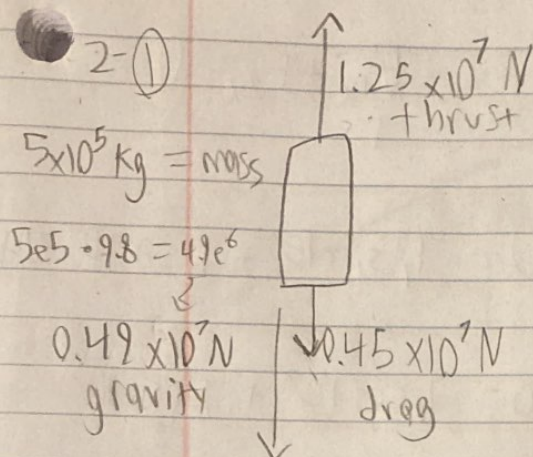 2-①
1.25 ×10⁷ N
thrust
5×10⁵ kg = mass
5e5 • 9.8 = 4.9e⁶
0.49 ×10⁷ N
gravity
0.45 ×10⁷ N
drag